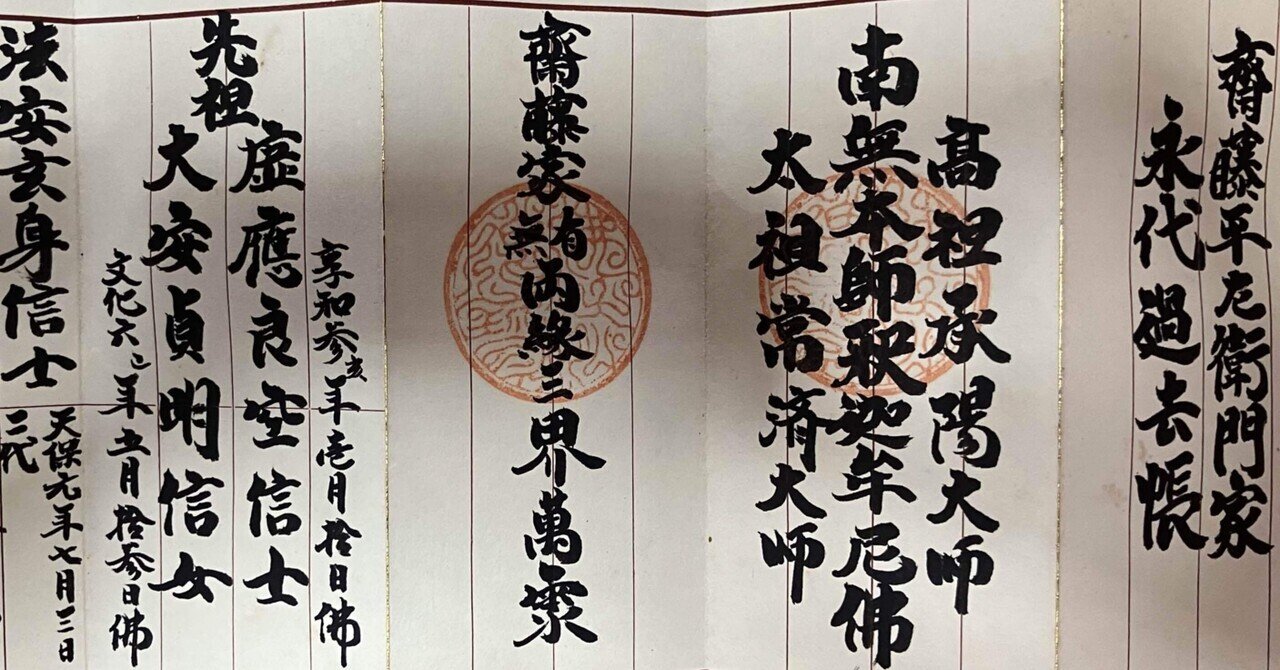 齋藤平左衛門家
永代過去帳
高祖承陽大师
南無本師釈迦牟尼佛
太祖常済大师
齋藤家有無両縁三界萬霊
享和参亥年壱月拾日佛
先祖
虚應良空信士
大安貞明信女
文化六巳年五月拾参日佛
法安玄身信士
天保元年七月三日
二代